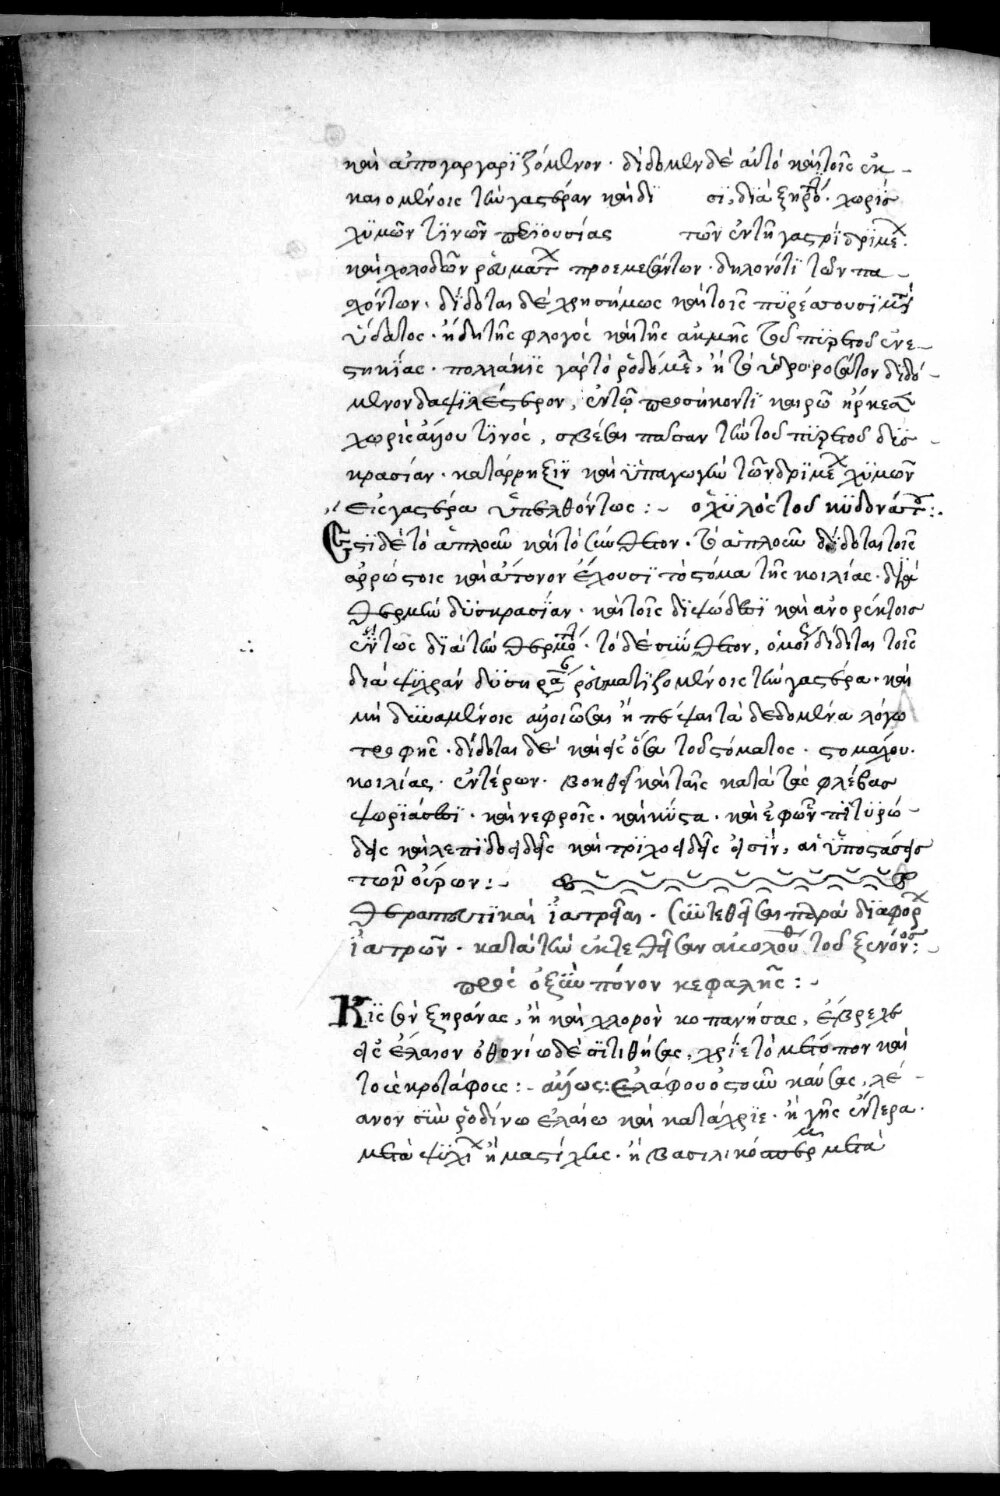 καὶ ἀπογαργαριζόμενον· δίδομεν δὲ αὐτὸ καὶ τοῖς ἐκ-
καιομένοις τὴν γαστέραν καὶ δι σι, διὰ ξηρό· χωρὶς
χϋμῶν τϊνῶν περϊουσίας τῶν ἐν τῇ γαστρὶ δρϊμέ·
καὶ χολοδῶν ῥευματ προσμεθέντων· δηλονότϊ τῶν πα-
χόντων· δίδοται δὲ χρησήμως καὶ τοῖς πϋρέσσουσϊ μετὰ
ὕδατος· ἤδη τῆς φλογὸς καὶ τῆς ἀκμῆς τοῦ πϋρετοῦ ἑνε-
στηκϊας· πολλάκϊς γὰρ τὸ ῥοδόμελ, ἢ τὸ ὑδροροσάτον διδό-
μενον δαψϊλέστερον, ἐν τῷ προσήκοντϊ καιρῶ ἤρκεσ
χωρὶς ἄλλου τϊνός, σβέσαι πᾶσαν τὴν τοῦ πϋρετοῦ δϋσ-
κρασίαν· κατάρρηξϊν καὶ ϋπαγωγὴν τῶν δρϊμέ χϋμῶν
εἰς γαστέρα ὑπελθόντως:- ὁ χϋλὸς τοῦ κϋδωνάτ:·
Εστϊ δὲ τὸ ἁπλοῦν καὶ τὸ σύνθετον· τὸ ἁπλοῦν δίδοται τοῖς
ἀρρώστοις καὶ ἄτονον ἔχουσϊ τὸ στόμα τῆς κοιλίας· διὰ
θερμὴν δϋσκρασϊαν· καὶ τοῖς δϊψώδεσϊ καὶ ἀνορέκτοις
οὕτως διὰ τὴν θερμό· τὸ δὲ σύνθετον, ὁμοί δίδοται τοῖς
διὰ ψϋχρὰν δϋσκρα ῥευματϊζομένοις τὴν γαστέρα· καὶ
μὴ δϋναμένοις ἀλλοιῶσαι ἢ πέψαι τὰ δεδομένα λόγω
τροφῆς· δίδοται δὲ καὶ εἰς ὅσα τοῦ στόματος· στομάχου·
κοιλίας· ἐντέρων· βοηθεῖ καὶ ταῖς κατὰ τὰς φλέβας
ψωρϊάσεσϊ· καὶ νεφροῖς· καὶ κύστα· καὶ ἐφ' ὧν πϊτϋρώ-
δεις καὶ λεπιδοειδεῖς καὶ τρϊχοειδεῖς εἰσὶν, αἱ ὑποστάσεις
τῶν οὔρων:-
Θεραπευτϊκαὶ ἰατρεῖαι· συντεθεῖσαι παρὰ διαφόρ
ἰατρῶν· κατὰ τὴν ἐκτεθεῖσαν ἀκολουθ τοῦ ξενόν:-
πρὸς ὀξὺν πόνον κεφαλῆς:-
Κϊσσὸν ξηράνας, ἢ καὶ χλορὸν κοπανήσας, ἔβρεχε
εἰς ἔλαιον ὀθονίω δὲ ἐπιτιθήσας, χρῖε τὸ μέτοπον καὶ
τοὺς κροτάφους:- ἄλλως: Ελάφου ὀστοῦν καύσας, λέ-
ανον σὺν ῥοδίνω ἐλαίω καὶ κατάχρϊε· ἢ γῆς ἔντερα·
μετὰ ψϋχϊ ἢ μαστίχης· ἢ βασιλικό μετὰ